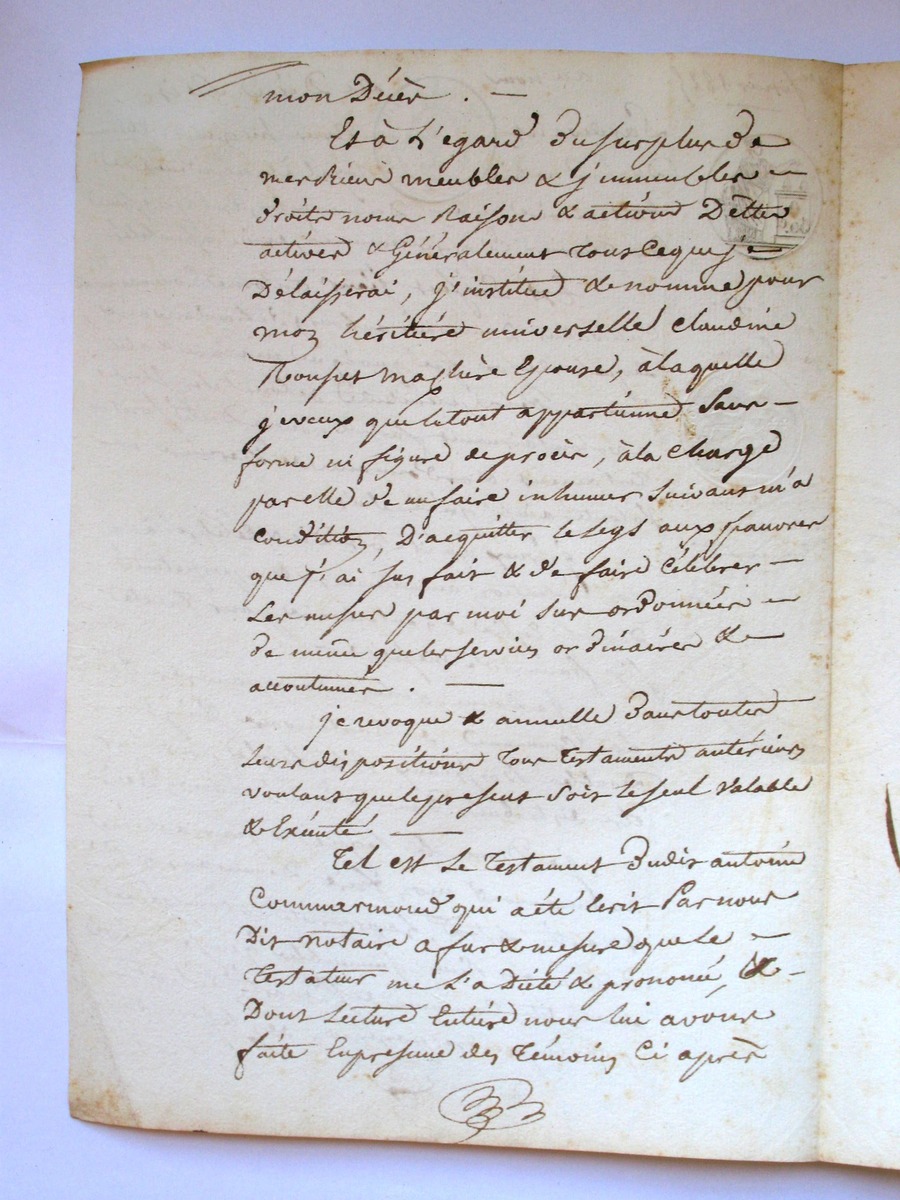 mon Décès . —
Et à L'egard du surplus de
mes Biens meubles & jmmeubles —
droits noms Raisons & actions Dettes
actives & Généralement tous ce que je
Délaisserai, j'institue & nomme pour
mon héritière universelle Claudine
Rousset ma chère Epouse, à laquelle
je veux que le tout appartienne sans —
forme ni figure de procès, à la charge
par elle de me faire inhumer suivant ma
condition, D'acquitter le legs aux pauvres
que j'ai sus fait & de faire célébrer —
Les messes par moi sus ordonnées —
de même que les services ordinaires &
accoutumés . —
je revoque & annulle dans toutes
leurs dispositions tous testaments antérieurs
voulant que le present soit le seul valable
& Exécuté —
Tel est le testament dudit antoine
Commarmond qui a été écrit Par nous
Dit notaire a fur & mesure que le —
testateur me l'a Dicté & prononcé, & —
Dont lecture Entière nous lui avons
faite En presence des témoins Ci après